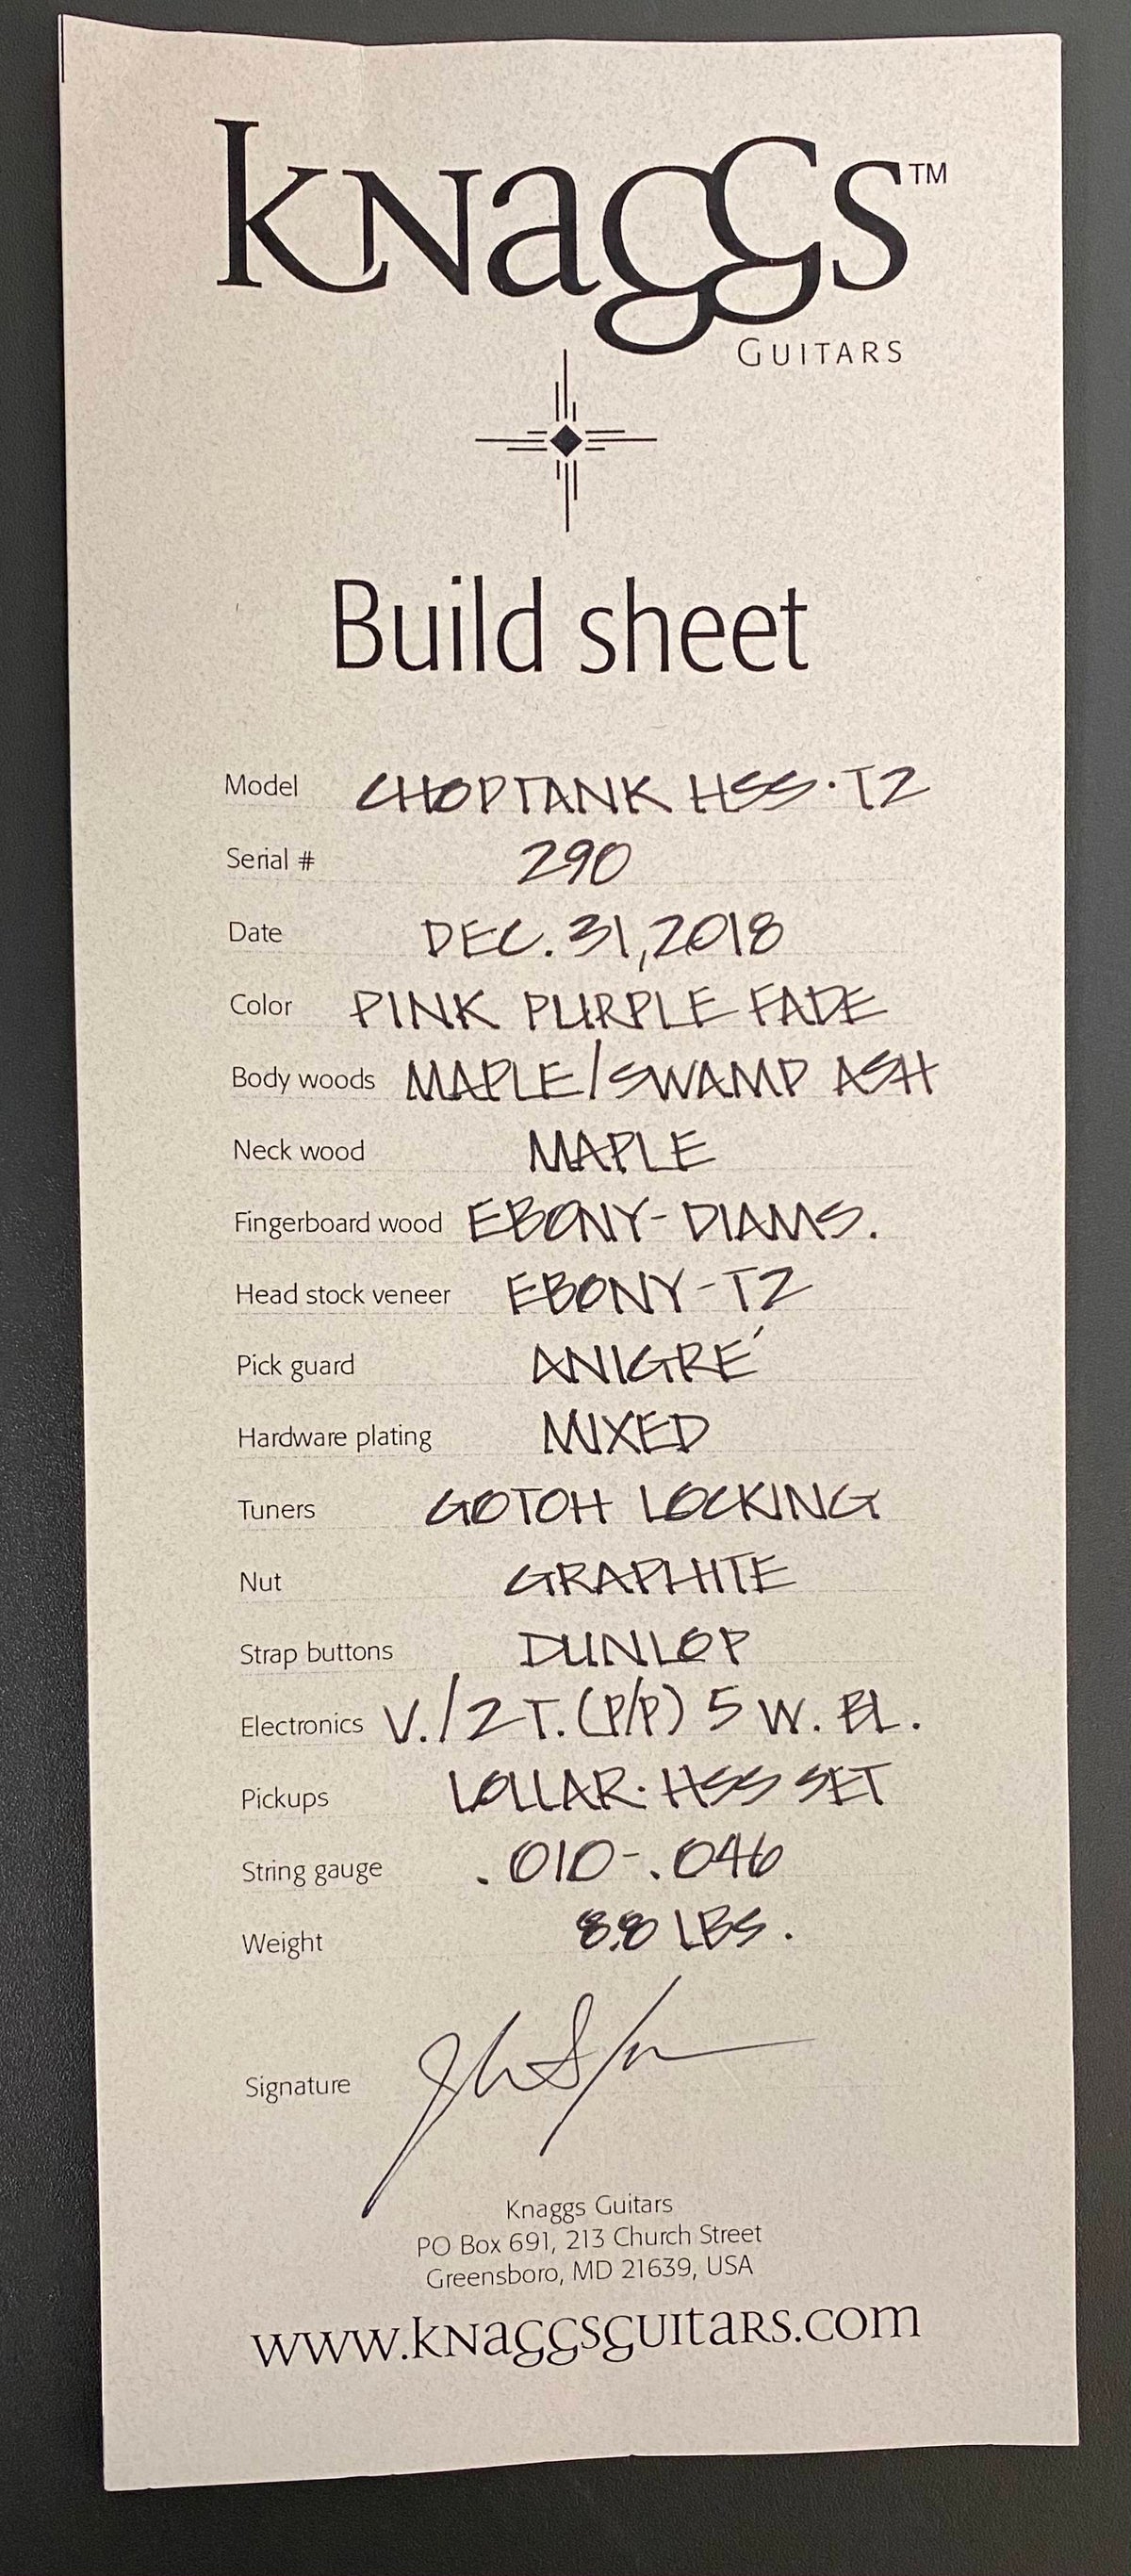 knaggs™
GUITARS
Build sheet
Model CHOPTANK HSS·T2
Serial # 290
Date DEC. 31, 2018
Color PINK PURPLE FADE
Body woods MAPLE/SWAMP ASH
Neck wood MAPLE
Fingerboard wood EBONY-DIAMS.
Head stock veneer EBONY-T2
Pick guard ANIGRÉ
Hardware plating MIXED
Tuners GOTOH LOCKING
Nut GRAPHITE
Strap buttons DUNLOP
Electronics V./2 T. (P/P) 5 W. BL.
Pickups LOLLAR·HSS SET
String gauge .010-.046
Weight 8.8 LBS.
Signature
Knaggs Guitars
PO Box 691, 213 Church Street
Greensboro, MD 21639, USA
www.knaggsguitars.com